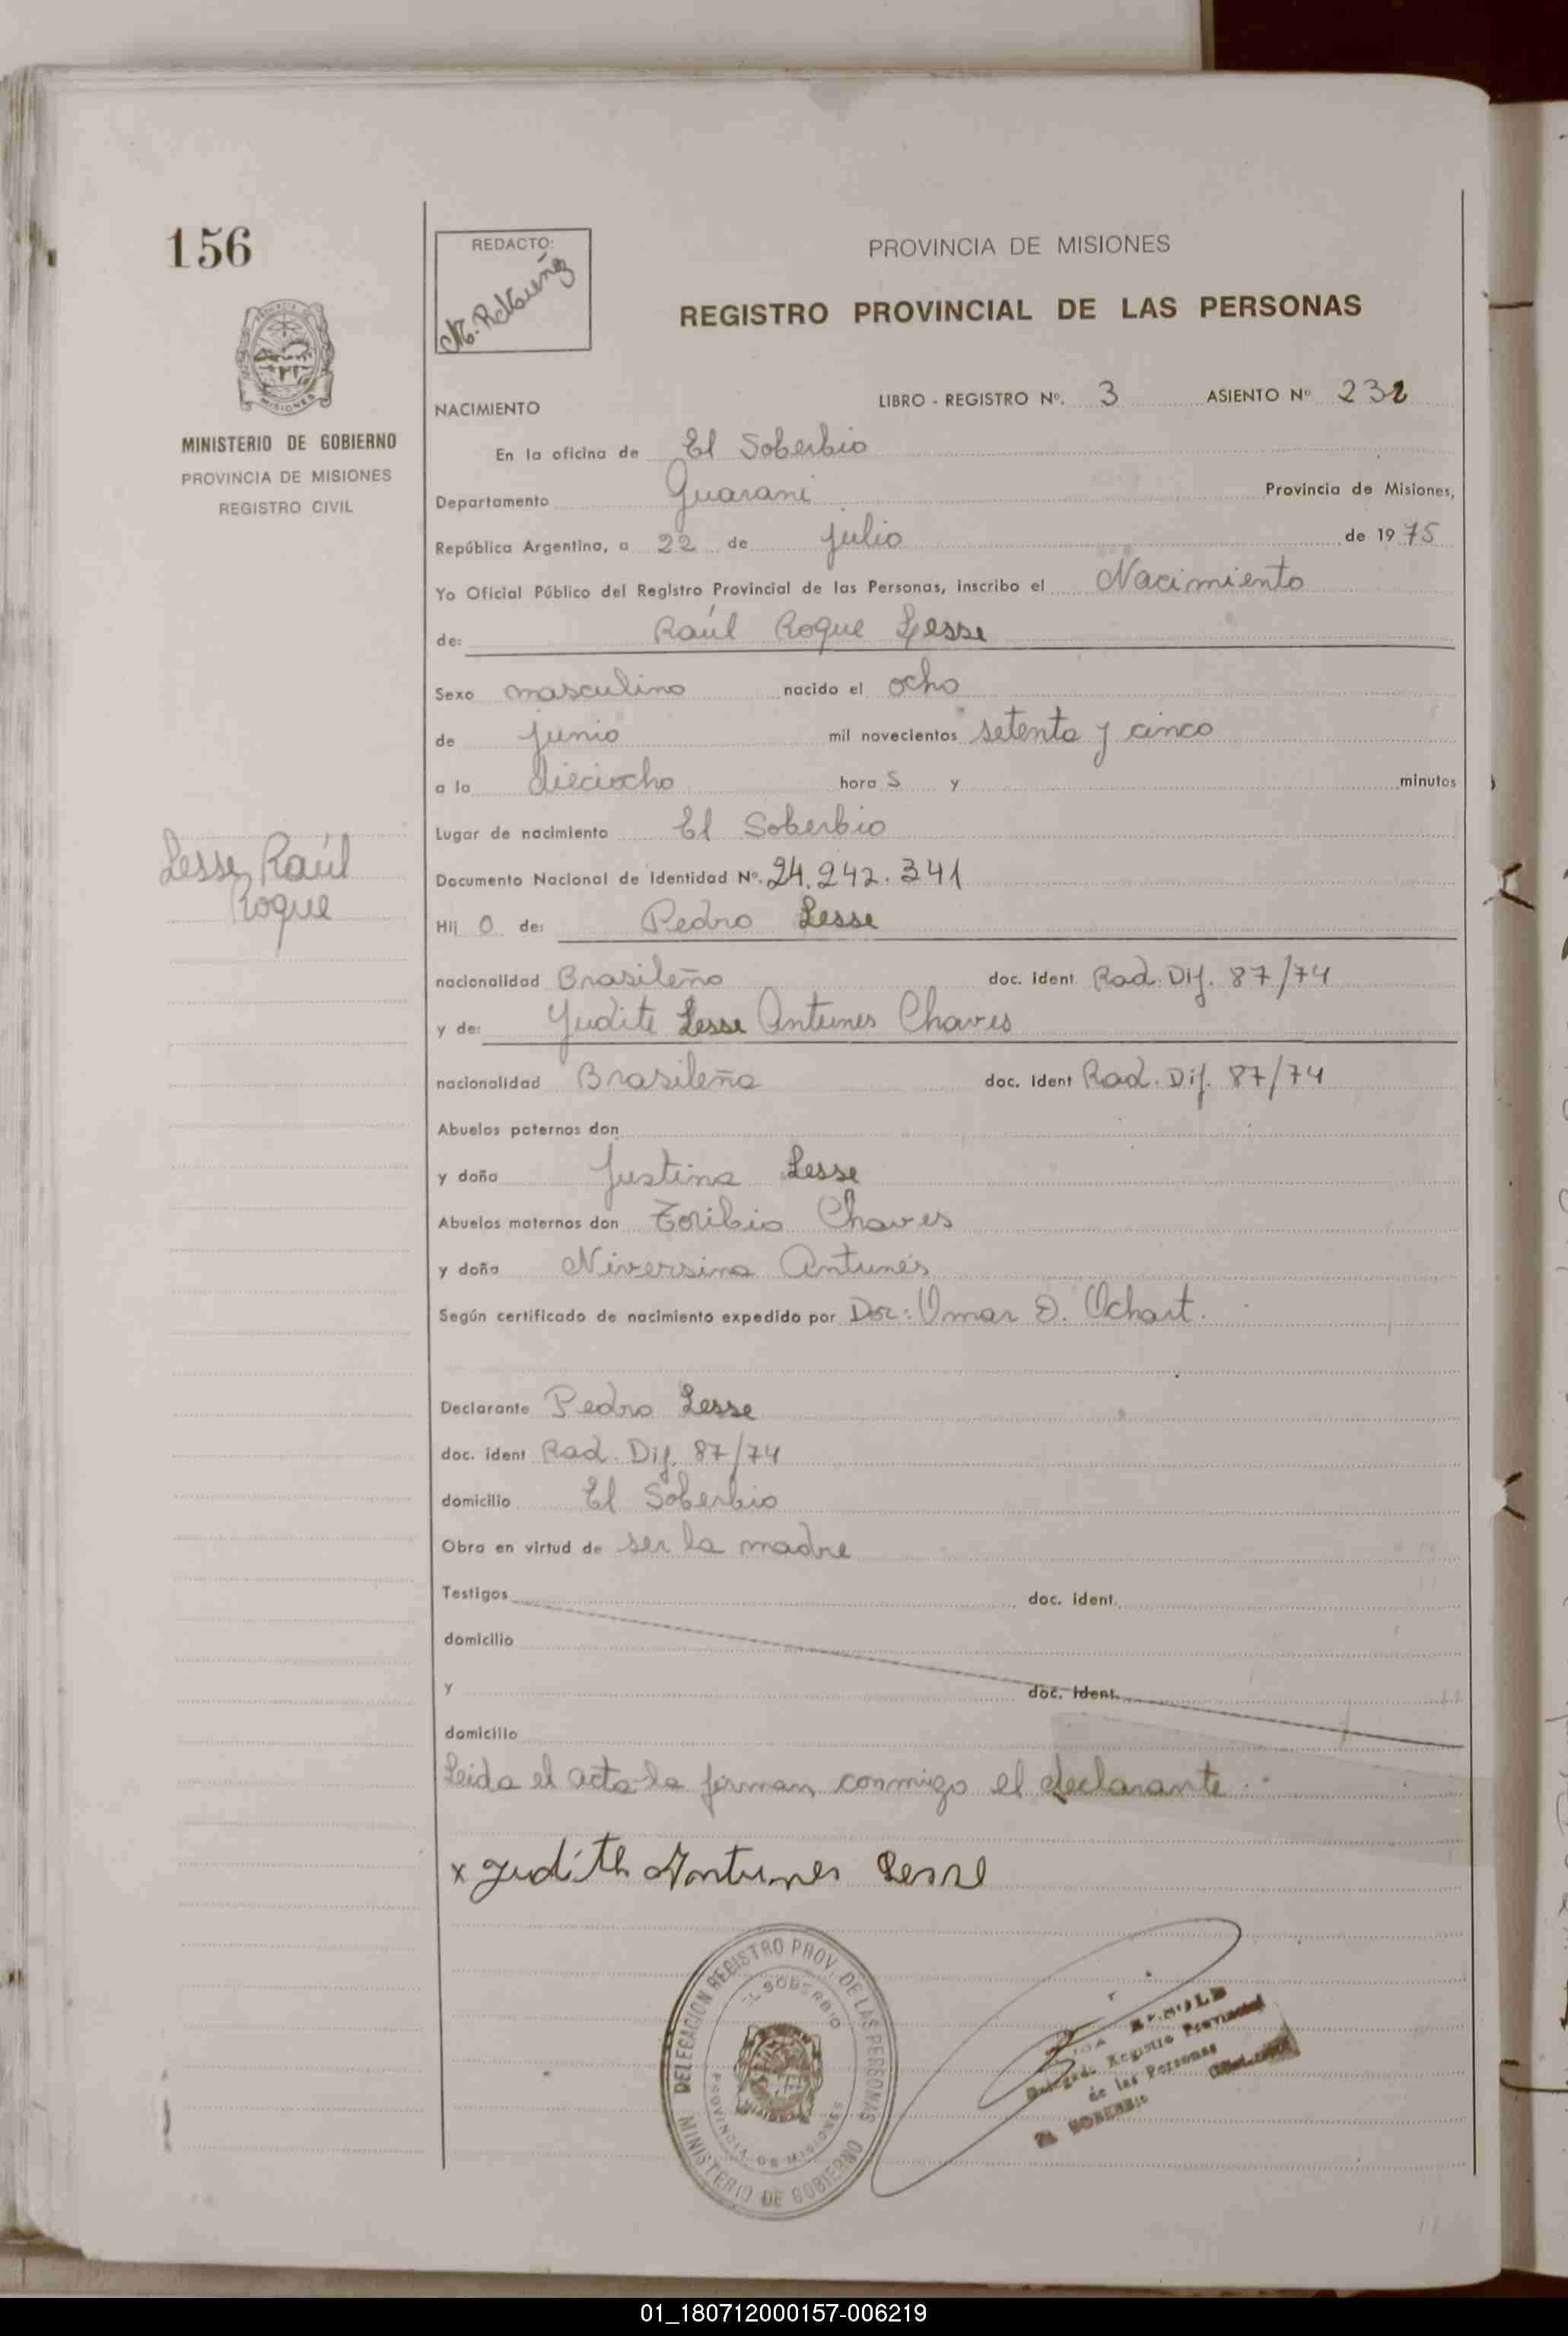 156
REDACTO:
PROVINCIA DE MISIONES
REGISTRO PROVINCIAL DE LAS PERSONAS
MISIONES
MINISTERIO DE GOBIERNO
PROVINCIA DE MISIONES
REGISTRO CIVIL
LIBRO - REGISTRO Nº. 3 ASIENTO Nº 232
NACIMIENTO
En la oficina de El Soberbio
Departamento Guarani Provincia de Misiones,
República Argentina, a 22 de julio de 1975
Yo Oficial Público del Registro Provincial de las Personas, inscribo el Nacimiento
de: Raúl Roque Lesse
Sexo masculino nacido el ocho
de junio mil novecientos setenta y cinco
a la dieciocho hora s y minutos
Lugar de nacimiento El Soberbio
Lesse, Raúl
Roque
Documento Nacional de Identidad Nº. 24.242.341
Hij o de: Pedro Lesse
nacionalidad Brasileño doc. ident. Rad. Dif. 87/74
y de: Yudite Lesse Antunes Chaves
nacionalidad Brasileña doc. Ident Rad. Dif. 87/74
Abuelos paternos don
y doña Justina Lesse
Abuelos maternos don Toribio Chaves
y doña Niversina Antunes
Según certificado de nacimiento expedido por Doc: Omar O. Ochart.
Declarante Pedro Lesse
doc. ident Rad. Dif. 87/74
domicilio El Soberbio
Obra en virtud de ser la madre
Testigos doc. ident.
domicilio
y doc. Ident.
domicilio
Leida el acta la firman conmigo el declarante.
x Judith Antunes Lesse
DELEGACION REGISTRO PROV. DE LAS PERSONAS
EL SOBERBIO
PROVINCIA DE MISIONES
MINISTERIO DE GOBIERNO
Registro Provincial
de las Personas
EL SOBERBIO
01_180712000157-006219